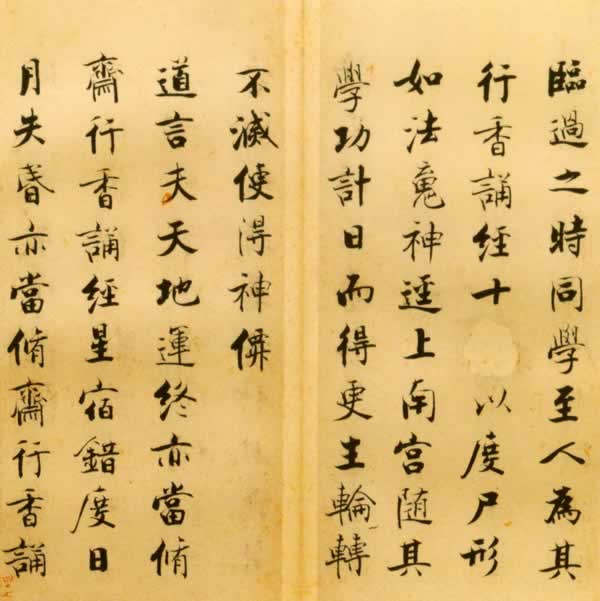 臨過之時同學至人為其
行香誦經十以度尸形
如法魂神逕上南宮隨其
學功計日而得更生輪轉
不滅便得神僊
道言夫天地運終亦當脩
齋行香誦經星宿錯度日
月失昬亦當脩齋行香誦